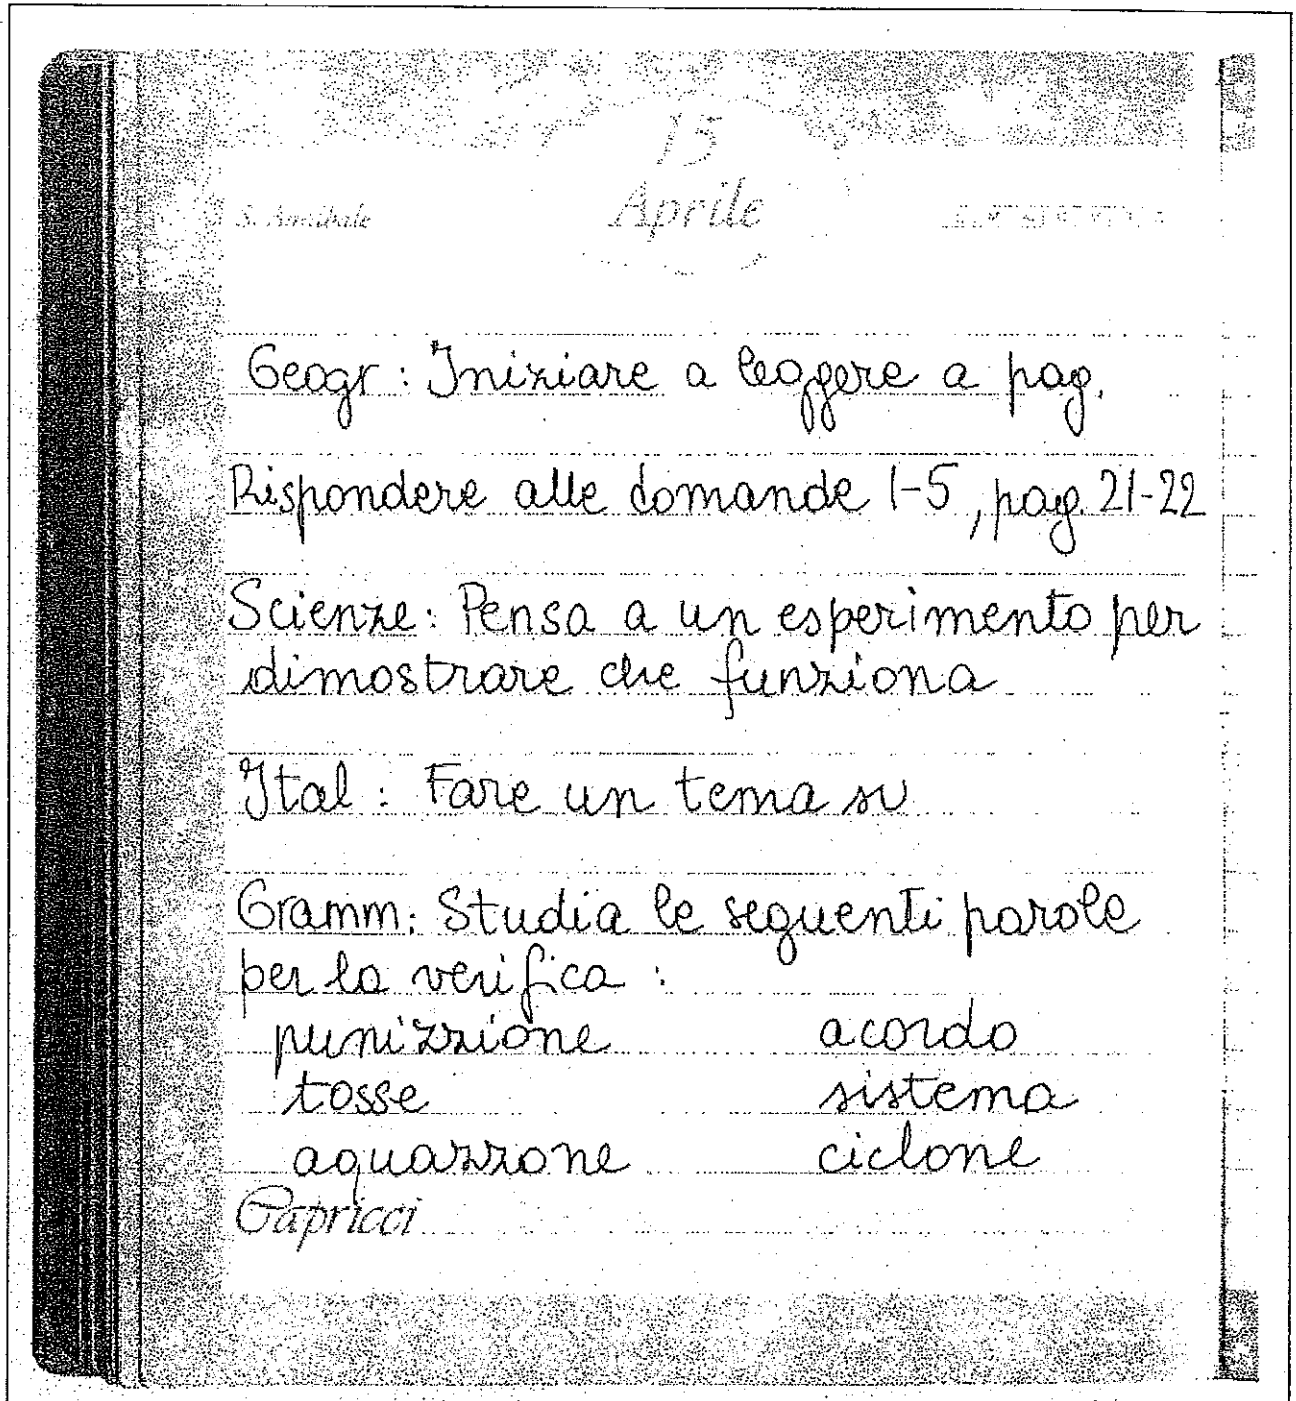 15
Aprile
S. Annibale
Geogr: Iniziare a leggere a pag.
Rispondere alle domande 1-5, pag. 21-22
Scienze: Pensa a un esperimento per
dimostrare che funziona
Ital: Fare un tema su
Gramm: Studia le seguenti parole
per la verifica:
punizzione acordo
tosse sistema
aquazzone ciclone
Capricci